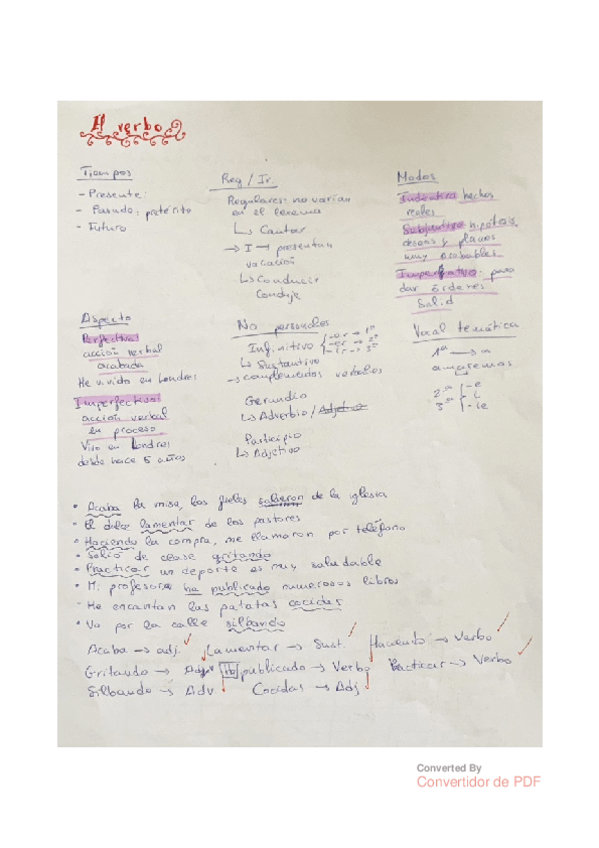 El verbo
Tiempos
- Presente:
- Pasado: pretérito
- Futuro
Reg / Ir.
Regulares: no varían
en el lexema
↳ Cantar
→ I → presentan
variación
↳ Conducir
Conduje
Modos
Indicativo: hechos
reales
Subjuntivo: hipótesis
deseos y planes
muy probables
Imperativo: para
dar órdenes
Salid
Aspecto
Perfectivas
acción verbal
acabada
He vivido en Londres
Imperfectivas
acción verbal
en proceso
Vivo en Londres
desde hace 5 años
No personales
Infinitivo { -ar → 1ª
-er → 2ª
-ir → 3ª
↳ Sustantivo
→ complementos verbales
Gerundio
↳ Adverbio / Adjetivo
Participio
↳ Adjetivo
Vocal temática
1ª → a
amaremos
2ª { -e
3ª -i
-ie
• Acaba la misa, los fieles salieron de la iglesia
• El dulce lamentar de los pastores
• Haciendo la compra, me llamaron por teléfono
• Salió de clase gritando
• Practicar un deporte es muy saludable
• Mi profesora ha publicado numerosos libros
- Me encantan las patatas cocidas
• Va por la calle silbando
Acaba → adj. Lamentar → Sust. Haciendo → Verbo
Gritando → Adv Ha publicado → Verbo Practicar → Verbo
Silbando → Adv Cocidas → Adj
Converted By
Convertidor de PDF